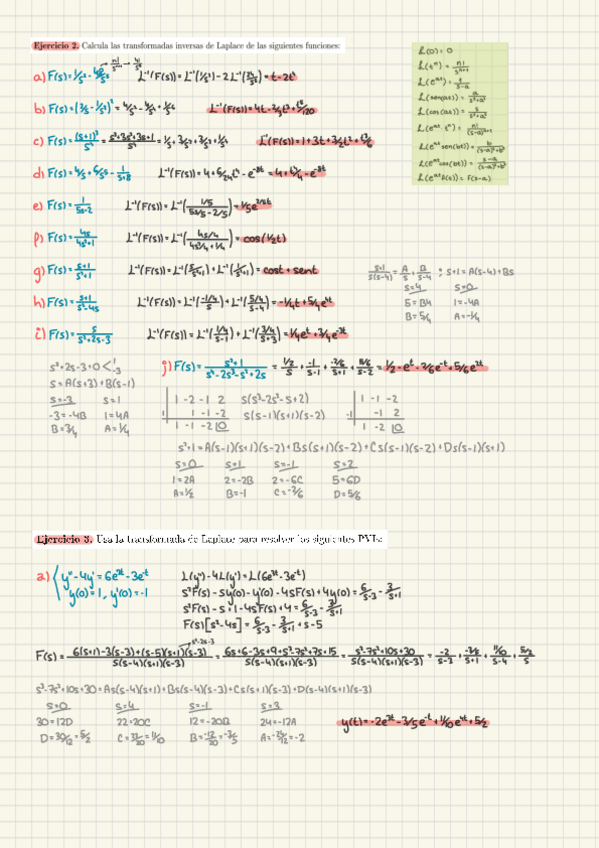 Ejercicio 2. Calcula las transformadas inversas de Laplace de las siguientes funciones:
L(0) = 0
L(tⁿ) = n!/sⁿ⁺¹
L(sen(at)) = a/s²+a²
L(cos(at)) = s/s²+a²
L(eᵃᵗ · tⁿ) = n!/(s-a)ⁿ⁺¹
L(eᵃᵗ sen(bt)) = b/(s-a)²+b²
L(eᵃᵗ cos(bt)) = s-a/(s-a)²+b²
L(eᵃᵗ f(t)) = F(s-a)
a) F(s) = 1/s² - 4/s³ L⁻¹(F(s)) = L⁻¹(1/s²) - 2L⁻¹(2/s³) = t - 2t²
b) F(s) = (2/s - 1/s³)² = 4/s² - 4/s⁴ + 1/s⁶ L⁻¹(F(s)) = 4t - 2/3t³ + t⁵/120
c) F(s) = (s+1)³/s⁴ = s³+3s²+3s+1/s⁴ = 1/s + 3/s² + 3/s³ + 1/s⁴ L⁻¹(F(s)) = 1 + 3t + 3/2t² + t³/6
d) F(s) = 4/s + 6/s⁵ - 1/s+8 L⁻¹(F(s)) = 4 + 6/24t⁴ - e⁻⁸ᵗ = 4 + t⁴/4 - e⁻⁸ᵗ
e) F(s) = 1/5s-2 L⁻¹(F(s)) = L⁻¹(1/5/5s/5 - 2/5) = 1/5e²/⁵ᵗ
f) F(s) = 4s/4s²+1 L⁻¹(F(s)) = L⁻¹(4s/4/4s²/4 + 1/4) = cos(1/2t)
g) F(s) = s+1/s²+1 L⁻¹(F(s)) = L⁻¹(s/s²+1) + L⁻¹(1/s²+1) = cost + sent
s+1/s(s-4) = A/s + B/s-4 ; s+1 = A(s-4) + Bs
s=4 s=0
5=B4 1=-4A
B=5/4 A=-1/4
h) F(s) = s+1/s²-4s L⁻¹(F(s)) = L⁻¹(-1/4/s) + L⁻¹(5/4/s-4) = -1/4t + 5/4e⁴ᵗ
i) F(s) = s/s²+2s-3 L⁻¹(F(s)) = L⁻¹(1/4/s-1) + L⁻¹(3/4/s+3) = 1/4eᵗ + 3/4e⁻³ᵗ
s²+2s-3=0 < 1 -3
s = A(s+3) + B(s-1)
s=-3 s=1
-3=-4B 1=4A
B=3/4 A=1/4
j) F(s) = s²+1/s⁴-2s³-s²+2s = 1/2/s + -1/s-1 + -2/6/s+1 + 5/6/s-2 = 1/2 - eᵗ - 2/6e⁻ᵗ + 5/6e²ᵗ
1 -2 -1 2 s(s³-2s²-s+2) 1 -1 -2
1 1 -1 -2 s(s-1)(s+1)(s-2) -1 -1 2
1 -1 -2 0 1 -2 0
s²+1 = A(s-1)(s+1)(s-2) + Bs(s+1)(s-2) + Cs(s-1)(s-2) + Ds(s-1)(s+1)
s=0 s=1 s=-1 s=2
1=2A 2=-2B 2=-6C 5=6D
A=1/2 B=-1 C=-2/6 D=5/6
Ejercicio 3. Usa la transformada de Laplace para resolver los siguientes PVIs:
a) y''-4y' = 6e³ᵗ-3e⁻ᵗ L(y'')-4L(y') = L(6e³ᵗ-3e⁻ᵗ)
y(0)=1, y'(0)=-1 s²F(s) - sy(0) - y'(0) - 4sF(s) + 4y(0) = 6/s-3 - 3/s+1
s²F(s) - s + 1 - 4sF(s) + 4 = 6/s-3 - 3/s+1
F(s)[s²-4s] = 6/s-3 - 3/s+1 + s-5
s²-2s-3
F(s) = 6(s+1)-3(s-3)+(s-5)(s+1)(s-3)/s(s-4)(s+1)(s-3) = 6s+6-3s+9+s³-7s²+7s+15/s(s-4)(s+1)(s-3) = s³-7s²+10s+30/s(s-4)(s+1)(s-3) = -2/s-3 + -3/5/s+1 + 11/10/s-4 + 5/2/s
s³-7s²+10s+30 = As(s-4)(s+1) + Bs(s-4)(s-3) + Cs(s+1)(s-3) + D(s-4)(s+1)(s-3)
s=0 s=4 s=-1 s=3
30=12D 22=20C 12=-20B 24=-12A
D=30/12=5/2 C=22/20=11/10 B=-12/20=-3/5 A=-24/12=-2
y(t) = -2e³ᵗ - 3/5e⁻ᵗ + 11/10e⁴ᵗ + 5/2